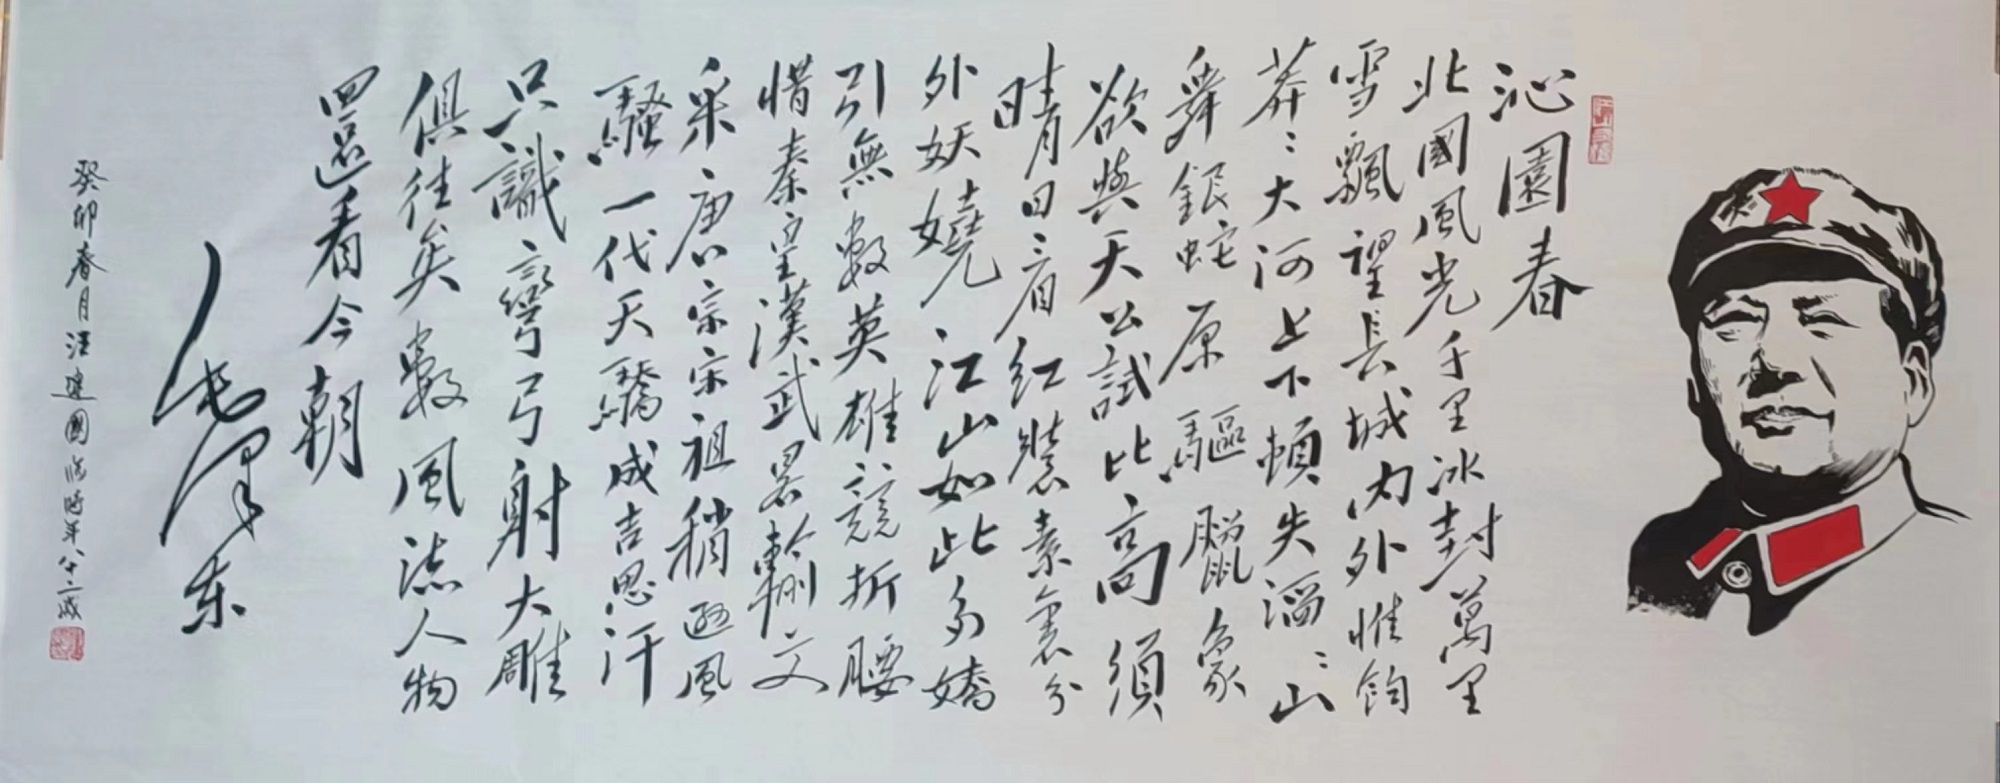 沁園春
北國風光千里冰封萬里
雪飄望長城内外惟餘
莽〻大河上下頓失滔〻山
舞銀蛇原驅臘象
欲與天公試比高須
晴日看紅裝素裹分
外妖嬈江山如此多嬌
引無數英雄競折腰
惜秦皇漢武畧輸文
采唐宗宋祖稍遜風
騷一代天驕成吉思汗
只識彎弓射大雕
俱往矣數風流人物
還看今朝
毛泽东
癸卯春月汪建國临时年八十二歲